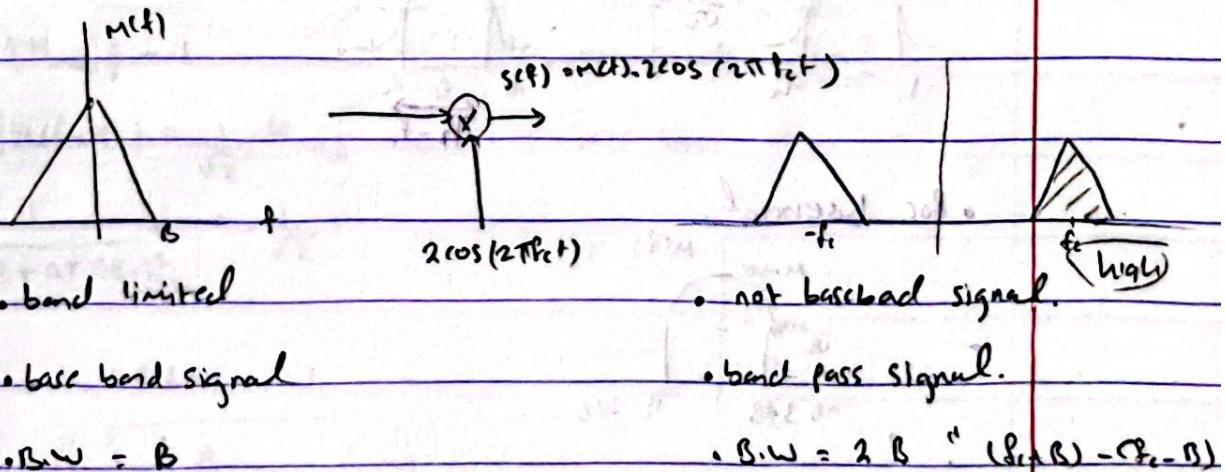 M(f)
s(t) = m(t).2cos (2πfct)
X
B
f
2cos(2πfct)
-fc
fc
high
• band limited
• not basebad signal.
• base band signal
• band pass signal.
• B.W = B
• B.W = 2B " (fc+B) - (fc-B)